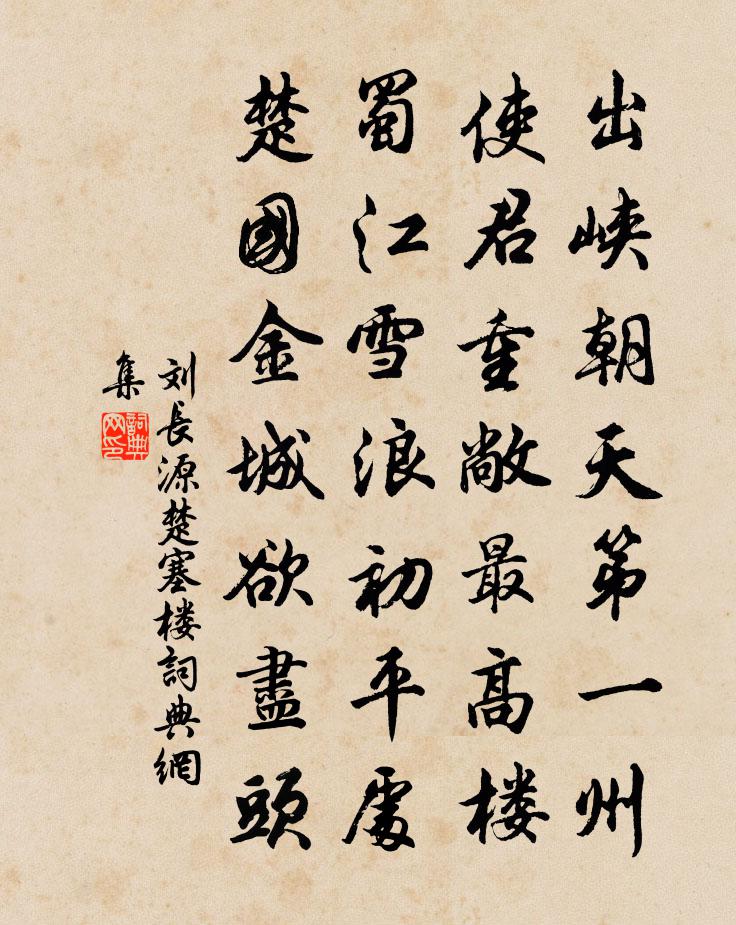 出峽朝天第一州
使君重敞最高楼
蜀江雪浪初平處
楚國金城欲盡頭
刘長源楚塞楼詞典網
集
詞典
网印